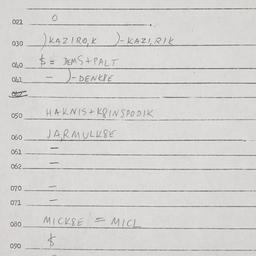 021 0
030 )KAZIRO,K )-KAZI,RIK
040 $ = DEMS+PALT
041 - )-DENK8E
050 HAKNIS+KRINSPODIK
060 JARMULK8E
061 -
062 -
070 -
071 -
080 MICK8E = MICL
$
090